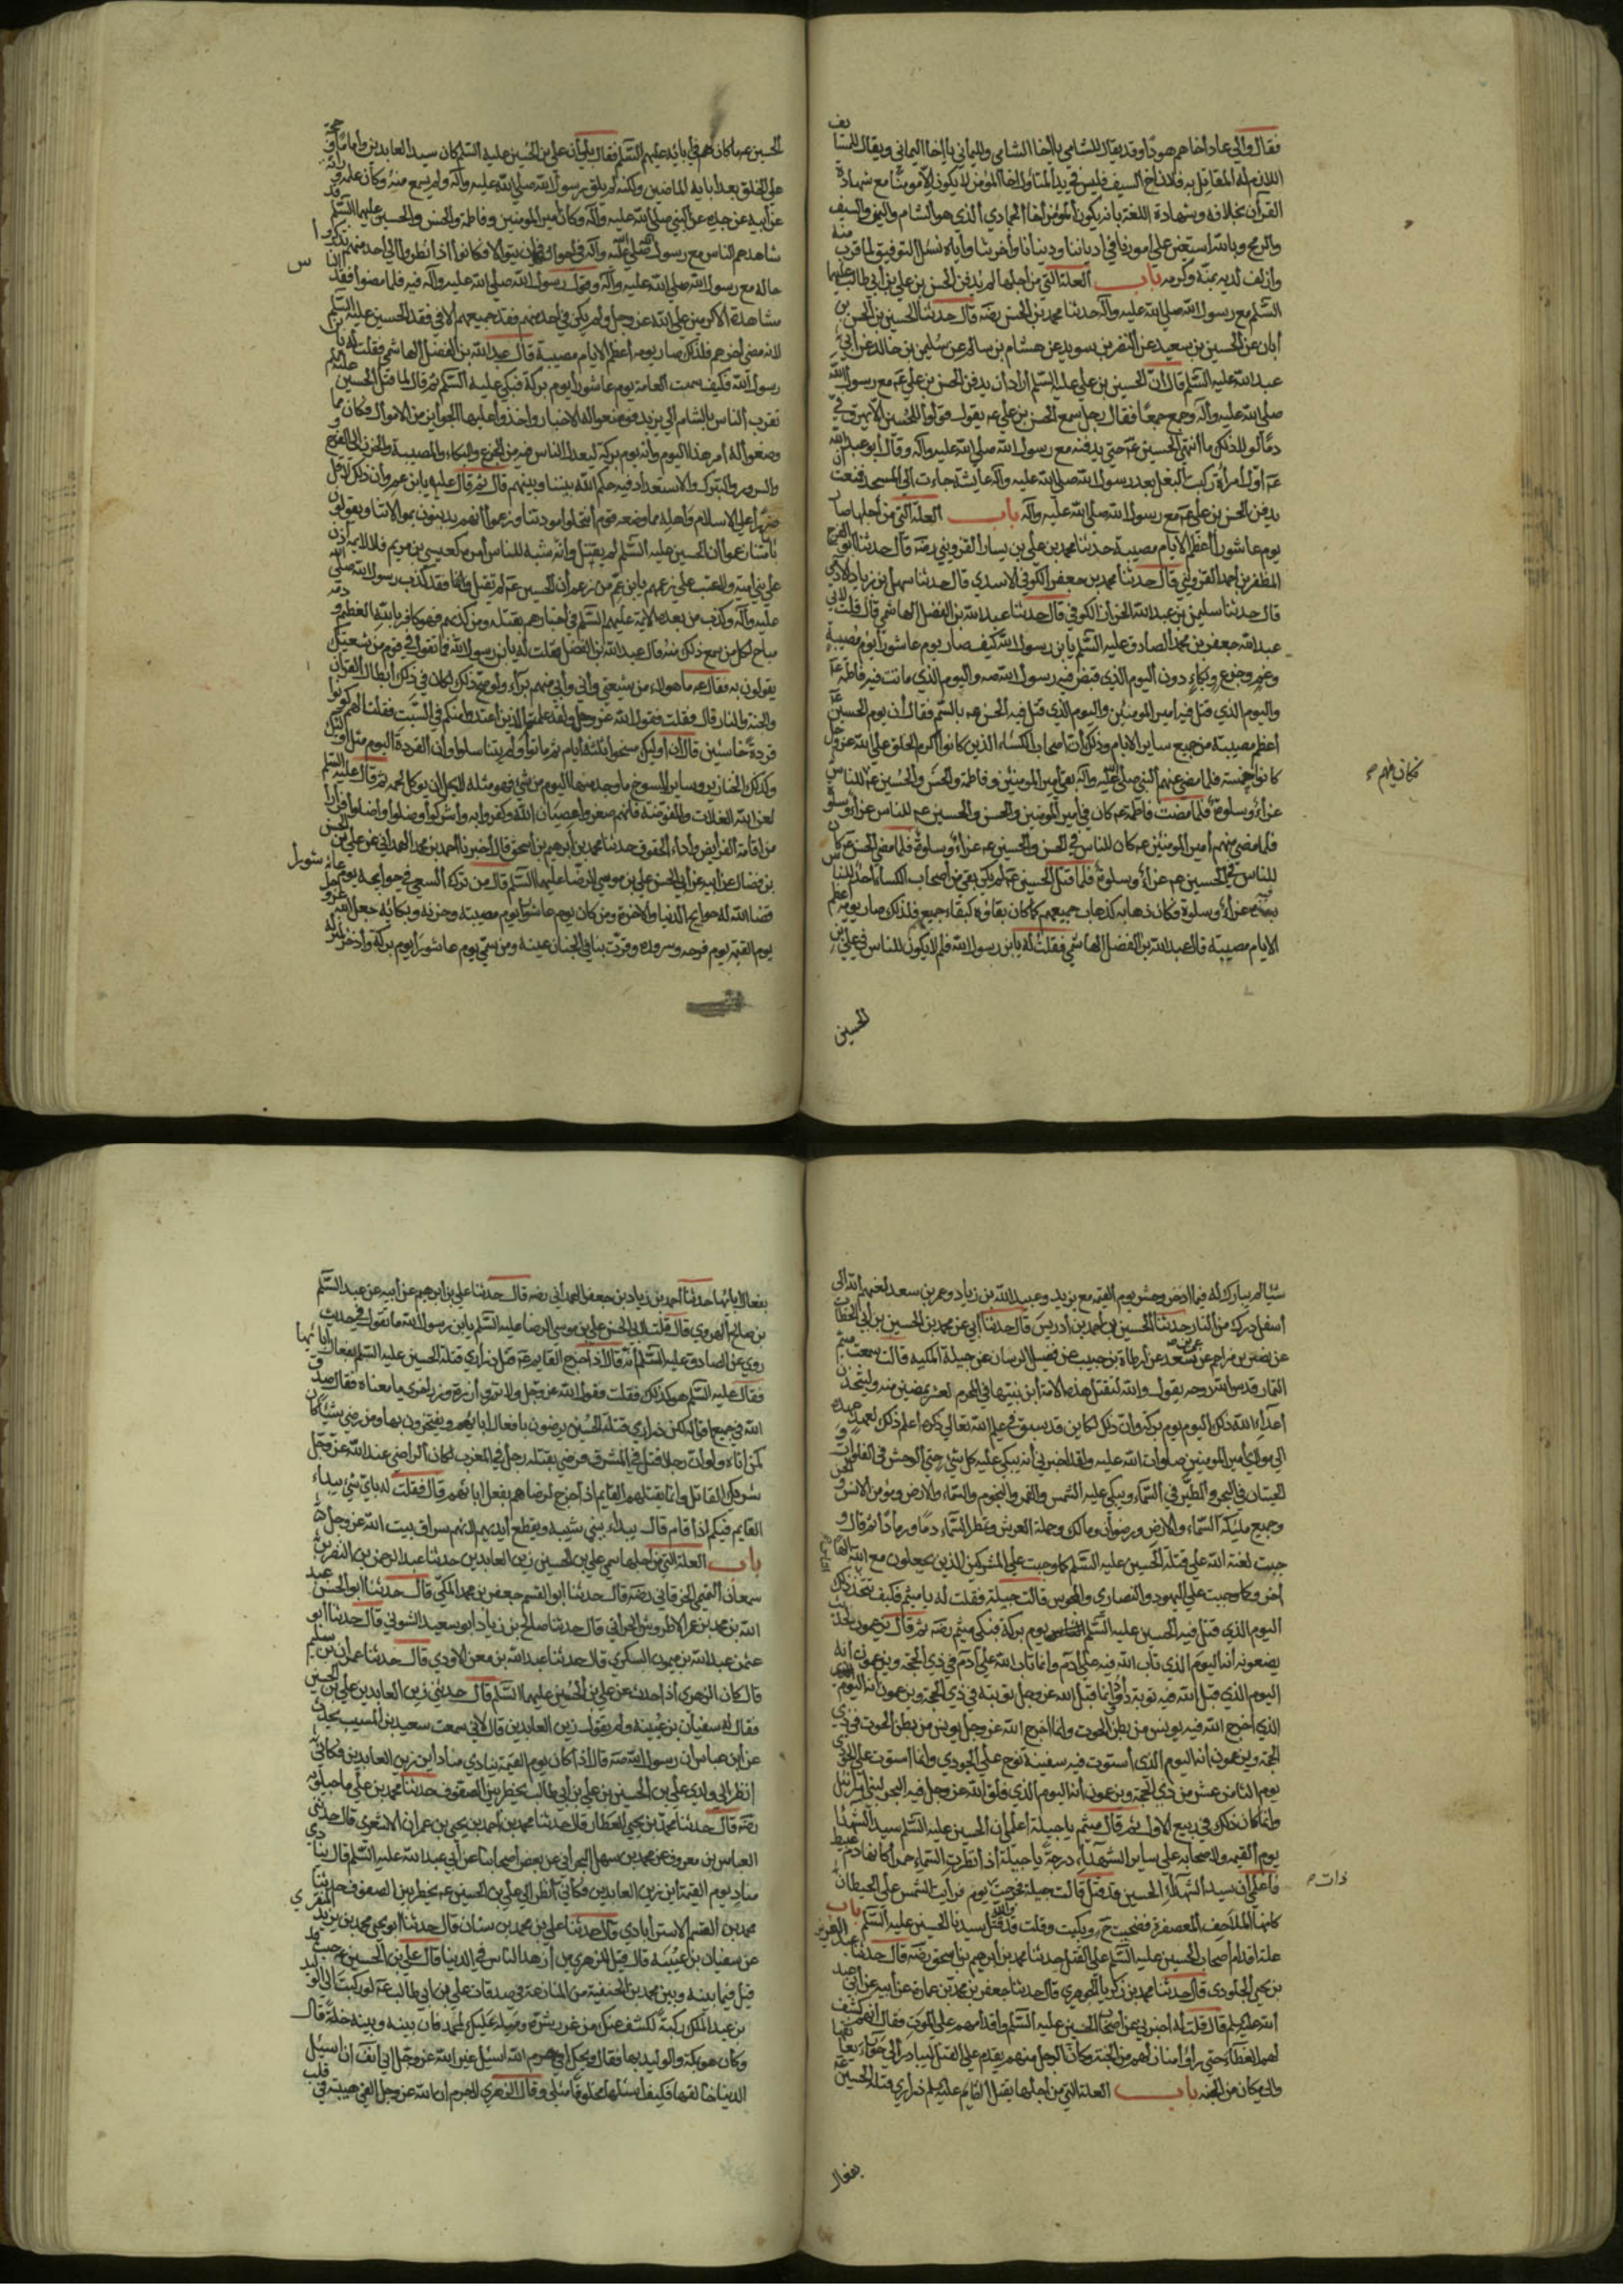 فقال والى عاد أخاهم هودًا وقد يقال للشامي يا أخا الشامي ولليماني يا أخا اليماني ويقال للمسايف
اللازم له المقاتل به فلان أخ السيف فليس في يد المتأول أخا المؤمن لا يكون إلا مؤمنًا مع شهادة
القرآن بخلافه وشهادة اللغة بأنه يكون المؤمن أخا الجمادي الذي هو الشام واليمن والسيف
والرمح وبالله أستعين على أمورنا في أدياننا ودنيانا وأخرتنا وإياه نسئل التوفيق لما قرب منه
وأزلف لديه بمنه وكرمه باب العلة التي من أجلها لم يدفن الحسن بن علي بن أبي طالب عليهما
السلم مع رسول الله صلى الله عليه وآله حدثنا محمد بن الحسن رضه قال حدثنا الحسين بن الحسن بن
أبان عن الحسين بن سعيد عن النضر بن سويد عن هشام بن سالم عن سليمن بن خالد عن أبي
عبد الله عليه السلم قال أن الحسين بن علي عليه السلم أراد أن يدفن الحسن بن علي عم مع رسول الله
صلى الله عليه وآله وجمع جمعًا فقال رجل سمع الحسن بن علي عم يقول قولوا للحسين ألا يهرق في
دمًا لولا ذلك ما انتهى الحسين عم حتى يدفنه مع رسول الله صلى الله عليه وآله وقال أبو عبد الله
عم أول امرأة ركبت البغل بعد رسول الله صلى الله عليه وآله عايشة جاءت إلى المسجد فمنعت أن
يدفن الحسن بن علي عم مع رسول الله صلى الله عليه وآله باب العلة التي من أجلها صار
يوم عاشورا أعظم الأيام مصيبة حدثنا محمد بن علي بن بسار القزويني رضه قال حدثنا أبو الفرج
المظفر بن أحمد القزويني قال حدثنا محمد بن جعفر الكوفي الأسدي قال حدثنا سهل بن زياد الآدمي
قال حدثنا سليمن بن عبد الله الخزاز الكوفي قال حدثنا عبد الله بن الفضل الهاشمي قال قلت لأبي
عبد الله جعفر بن محمد الصادق عليه السلم يا بن رسول الله كيف صار يوم عاشورا يوم مصيبة
وغم وجزع وبكاء دون اليوم الذي قبض فيه رسول الله صه واليوم الذي ماتت فيه فاطمة عم
واليوم الذي قتل فيه أمير المؤمنين واليوم الذي قتل فيه الحسن عم بالسم فقال أن يوم الحسين عم
أعظم مصيبة من جميع ساير الأيام وذلك أن أصحاب الكساء الذين كانوا أكرم الخلق على الله عز وجل
كانوا خمسة فلما مضى عنهم النبي صلى الله عليه وآله بقي أمير المؤمنين وفاطمة والحسن والحسين عم
فكان فيهم
للناس عزاء وسلوة فلما مضت فاطمة عم كان في أمير المؤمنين والحسن والحسين عم للناس عزاء وسلوة
فلما مضى منهم أمير المؤمنين عم كان للناس في الحسن والحسين عم عزاء وسلوة فلما مضى الحسن عم كان
للناس في الحسين عم عزاء وسلوة فلما قتل الحسين عم لم يكن بقي من أصحاب الكساء أحد للناس
فيه بعده عزاء وسلوة فكان ذهابه كذهاب جميعهم كما كان بقاؤه كبقاء جميعهم فلذلك صار يومه أعظم
الأيام مصيبة قال عبد الله بن الفضل الهاشمي فقلت له يا بن رسول الله فلم لا يكون للناس في علي بن
الحسين
الحسين عم ما كان لهم في أبائه عليهم السلم فقال بلى أن علي بن الحسين عليه السلم كان سيد العابدين وإمامًا وحجة
على الخلق بعد أبايه الماضين ولكنه لم يلق رسول الله صلى الله عليه وآله ولم يسمع منه وكان علمه وراثة
عن أبيه عن جده عن النبي صلى الله عليه وآله وكان أمير المؤمنين وفاطمة والحسن والحسين عليهم السلم قد
شاهدهم الناس مع رسول الله صلى الله عليه وآله في أحوال تتوالى فكانوا إذا نظروا إلى أحد منهم تذكروا
حاله مع رسول الله صلى الله عليه وآله وقول رسول الله صلى الله عليه وآله فيه فلما مضوا فقد الناس
مشاهدة الأكرمين على الله عز وجل ولم يكن في أحد منهم فقد جميعهم إلا في فقد الحسين عليه السلم
لأنه مضى أخرهم فلذلك صار يومه أعظم الأيام مصيبة قال عبد الله بن الفضل الهاشمي فقلت له يا بن
رسول الله فكيف سمت العامة يوم عاشورا يوم بركة فبكى عليه السلم ثم قال لما قتل الحسين عليه السلم
تقرب الناس بالشام إلى يزيد فوضعوا له الأخبار وأخذوا عليها الجوايز من الأموال فكان مما
وضعوا له أمر هذا اليوم وأنه يوم بركة ليعدل الناس فيه من الجزع والبكاء والمصيبة والحزن إلى الفرح
والسرور والتبرك والاستعداد فيه حكم الله بيننا وبينهم قال ثم قال عليه يا بن عم وأن ذلك لأقل
ضررًا على الإسلام وأهله مما وضعه قوم انتحلوا مودتنا وزعموا أنهم يدينون بموالاتنا ويقولون
بإمامتنا زعموا أن الحسين عليه السلم لم يقتل وأنه شبه للناس أمره كعيسى بن مريم فلا لايمة إذن
على بني أمية ولا عتب على زعمهم يا بن عم من زعم أن الحسين عم لم يقتل فقد كذب رسول الله صلى الله
عليه وآله وكذب من بعده الأيمة عليهم السلم في أخبارهم بقتله ومن كذبهم فهو كافر بالله العظيم ودمه
مباح لكل من سمع ذلك منه قال عبد الله بن الفضل فقلت له يا بن رسول الله فما تقول في قوم من شيعتك
يقولون به فقال عم ما هؤلاء من شيعتي وأني وأني منهم براء ولو صح ذلك لكان في ذلك أبطال القرآن
والجنة والنار قال فقلت فقول الله عز وجل ولقد علمتم الذين اعتدوا منكم في السبت فقلنا لهم كونوا
قردة خاسئين قال أن أوليك مسخوا ثلثة أيام ثم ماتوا ولم يتناسلوا وأن القردة اليوم مثل أوليك
وكذلك الخنازير وساير المسوخ ما وجد منها اليوم من شيء فهو مثله لا يحل أن يوكل لحمه ثم قال عليه السلم
لعن الله الغلاة والمفوضة فإنهم صغروا عصيان الله وكفروا به وأشركوا وضلوا وأضلوا فرارا
من إقامة الفرايض وأداء الحقوق حدثنا محمد بن إبرهيم بن إسحق قال أخبرنا أحمد بن محمد الهمداني عن علي بن الحسن
بن فضال عن أبيه عن أبي الحسن علي بن موسى الرضا عليهما السلم قال من ترك السعي في حوايجه يوم عاشورا
قضا الله له حوايج الدنيا والآخرة ومن كان يوم عاشورا يوم مصيبته وحزنه وبكائه جعل الله عز وجل
يوم القيمة يوم فرحه وسروره وقرت بنا في الجنان عينه ومن سمى يوم عاشورا يوم بركة وأدخر لمنزله
شيًا لم يبارك له فيما ادخر وحشر يوم القيمة مع يزيد وعبيد الله بن زياد وعمر بن سعد لعنهم الله إلى
أسفل درك من النار حدثنا الحسين بن أحمد بن إدريس قال حدثنا أبي عن محمد بن الحسين بن أبي الخطاب
عن نصر بن مزاحم عن عمر بن سعد عن أرطاة بن حبيب عن فضيل الرسان عن جبلة المكية قالت سمعت ميثم
التمار قدس الله روحه يقول والله لتقتل هذه الأمة ابن نبيها في المحرم لعشر يمضين منه وليتخذن
أعداء الله ذلك اليوم يوم بركة وأن ذلك لكاين قد سبق في علم الله تعالى ذكره أعلم ذلك لعهد عهده
إلي مولاي أمير المؤمنين صلوات الله عليه ولقد أخبرني أنه يبكي عليه كل شيء حتى الوحش في الفلوات و
الحيتان في البحر والطير في السماء ويبكي عليه الشمس والقمر والنجوم والسماء والأرض ومؤمن الأنس والجن
وجميع مليكة السماء والأرض ورضوان ومالك وحملة العرش وتمطر السماء دمًا ورمادًا ثم قال و
جبت لعنة الله على قتلة الحسين عليه السلم كما وجبت على المشركين الذين يجعلون مع الله إلها
آخر وكما وجبت على اليهود والنصارى والمجوس قالت جبلة فقلت له يا ميثم فكيف يتخذ ذلك
اليوم الذي قتل فيه الحسين عليه السلم يوم بركة فبكى ميثم رضه ثم قال يزعمون لحديث
يضعونه أنه اليوم الذي تاب الله فيه على آدم وإنما تاب الله على آدم في ذي الحجة ويزعمون أنه
اليوم الذي قبل الله فيه توبة داود وإنما قبل الله عز وجل توبته في ذي الحجة ويزعمون أنه اليوم
الذي أخرج الله فيه يونس من بطن الحوت وإنما أخرج الله عز وجل يونس من بطن الحوت في ذي
الحجة ويزعمون أنه اليوم الذي استوت فيه سفينة نوح على الجودي وإنما استوت على الجودي
يوم الثامن عشر من ذي الحجة ويزعمون أنه اليوم الذي فلق الله عز وجل فيه البحر لبني إسرائيل
وإنما كان ذلك في ربيع الأول ثم قال ميثم يا جبلة أعلمي أن الحسين عليه السلم سيد الشهداء
يوم القيمة ولأصحابه على ساير الشهداء درجة يا جبلة إذا نظرت السماء حمرا كأنها دم عبيط
فاعلمي أن سيد الشهداء الحسين قد قتل قالت جبلة فخرجت ذات يوم فرأيت الشمس على الحيطان
كأنها الملاحف المعصفرة فصحت ح وبكيت وقلت قد والله قتل سيدنا الحسين عليه السلم باب
علة أقدام أصحاب الحسين عليه السلم على القتل حدثنا محمد بن إبرهيم بن إسحق رضه قال حدثنا عبد العزيز
بن يحيى الجلودي قال حدثنا محمد بن زكريا الجوهري قال حدثنا جعفر بن محمد بن عمارة عن أبيه عن أبي عبد
الله عليه السلم قال قلت له أخبرني عن أصحاب الحسين عليه السلم وأقدامهم على الموت فقال أنهم كشف
لهم الغطاء حتى رأوا منازلهم من الجنة وكان الرجل منهم يقدم على القتل ليبادر إلى حوراء يعانقها
وإلى مكانه من الجنة باب العلة التي من أجلها يقتل القايم عليه السلم ذراري قتلة الحسين عم
بفعال
بفعال آبائها حدثنا أحمد بن زياد بن جعفر الهمداني رضه قال حدثنا علي بن إبرهيم عن أبيه عن عبد السلم
بن صالح الهروي قال قلت لأبي الحسن علي بن موسى الرضا عليه السلم يا بن رسول الله ما تقول في حديث
روي عن الصادق عليه السلم أنه قال إذا خرج القايم عم قتل ذراري قتلة الحسين عليه السلم بفعال آبائها
فقال عليه السلم هو كذلك فقلت فقول الله عز وجل ولا تزر وازرة وزر أخرى ما معناه فقال صدق
الله في جميع أقواله لكن ذراري قتلة الحسين يرضون بأفعال آبائهم ويفتخرون بها ومن رضي شيئًا كان
كمن أتاه ولو أن رجلا قتل في المشرق فرضي بقتله رجل في المغرب لكان الراضي عند الله عز وجل
شريك القاتل وإنما يقتلهم القايم إذا خرج لرضاهم بفعل آبائهم قال فقلت له بأي شيء يبداء
القايم فيكم إذا قام قال يبداء ببني شيبة ويقطع أيديهم لأنهم سراق بيت الله عز وجل
باب العلة التي من أجلها سمي علي بن الحسين زين العابدين حدثنا عبد الله بن النضر بن
سمعان التميمي الخرقاني رضه قال حدثنا أبو القسم جعفر بن محمد المكي قال حدثنا أبو الحسن عبد
الله بن محمد بن عمر الأطروش الحراني قال حدثنا صالح بن زياد أبو سعيد الشوني قال حدثنا أبو
عثمن عبد الله بن ميمون السكري قال حدثنا عبد الله بن معن الأودي قال حدثنا عمران بن سليم
قال كان الزهري إذا حدث عن علي بن الحسين عليهما السلم قال حدثني زين العابدين علي بن الحسين
فقال له سفيان بن عيينة ولم يقول زين العابدين قال لأني سمعت سعيد بن المسيب يحدث
عن ابن عباس أن رسول الله صه قال إذا كان يوم القيمة ينادي مناد أين زين العابدين فكأني
أنظر إلى ولدي علي بن الحسين بن علي بن أبي طالب يخطر بين الصفوف حدثنا محمد بن علي ماجيلويه
رضه قال حدثنا محمد بن يحيى العطار قال حدثنا محمد بن أحمد بن يحيى بن عمران الأشعري قال حدثني
العباس بن معروف عن محمد بن سهل البحراني عن بعض أصحابنا عن أبي عبد الله عليه السلم قال ينادي
مناد يوم القيمة أين زين العابدين فكأني أنظر إلى علي بن الحسين عم يخطر بين الصفوف حدثنا
محمد بن القسم الاسترابادي قال حدثنا علي بن محمد بن سنان قال حدثنا أبو يحيى محمد بن يزيد المنقري
عن سفيان بن عيينة قال قيل للزهري من أزهد الناس في الدنيا قال علي بن الحسين عم حيث
قيل فيما بينه وبين محمد بن الحنفية من المنازعة في صدقات علي بن أبي طالب عم لو ركبت إلى الوليد
بن عبد الملك ركبة لكشف عنك من غرر شره وميله عليك لمحمد فإن بينه وبينه خلة قال
وكان هو بمكة والوليد بها فقال ويحك أفي حرم الله أسئل غير الله عز وجل إني آنف أن أسئل
الدنيا خالقها فكيف أسئلها مخلوقًا مثلي وقال الزهري لا جرم أن الله عز وجل ألقى هيبته في قلب